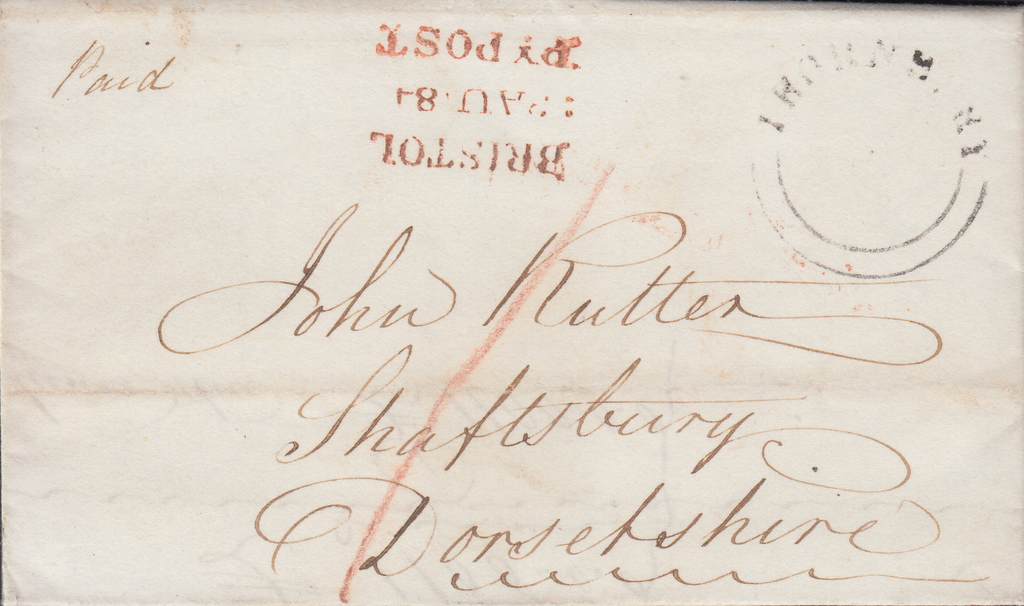 Paid
BRISTOL
PY POST
John Rutter
Shaftsbury
Dorsetshire